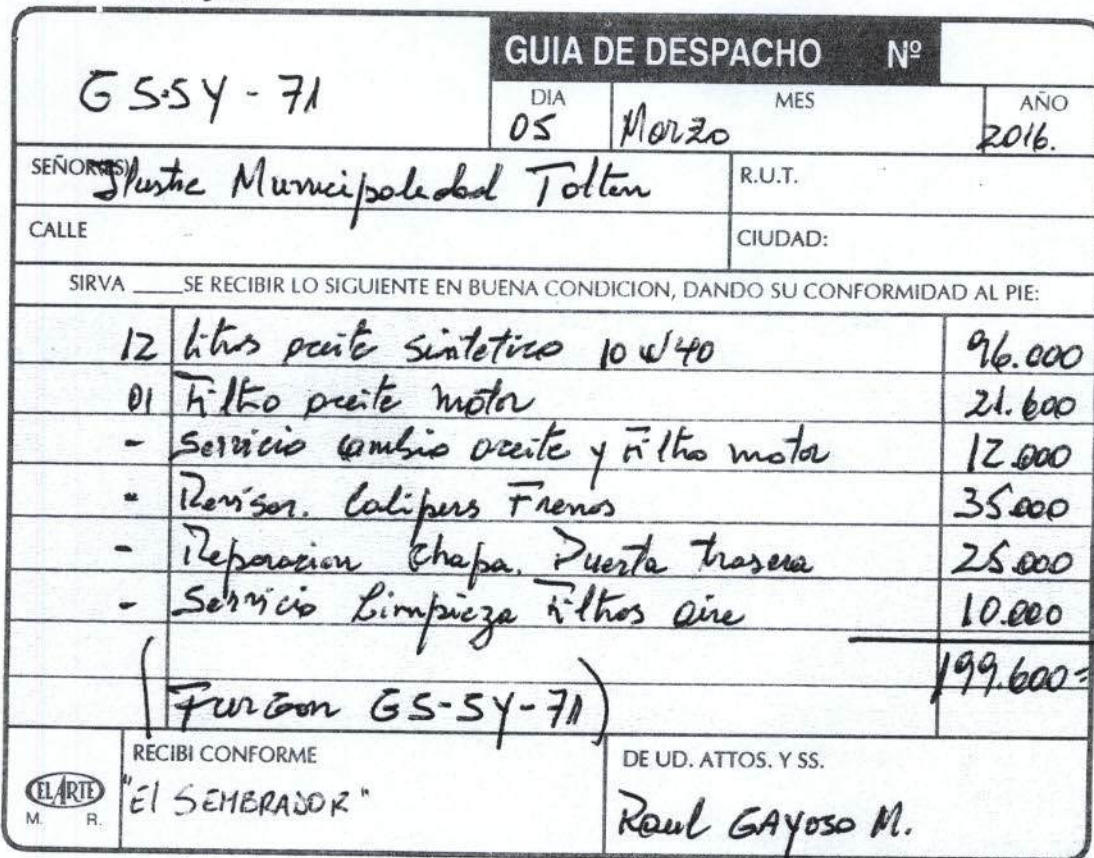 GUIA DE DESPACHO Nº
GS-SY-71
DIA MES AÑO
05 Marzo 2016.
SEÑOR(ES) Ilustre Municipalidad Tolten
R.U.T.
CALLE
CIUDAD:
SIRVA ____SE RECIBIR LO SIGUIENTE EN BUENA CONDICION, DANDO SU CONFORMIDAD AL PIE:
12 litros aceite sintetico 10W40 96.000
01 Filtro aceite motor 21.600
- Servicio cambio aceite y Filtro motor 12.000
- Revision. Calipers Frenos 35.000
- Reparacion Chapa. Puerta trasera 25.000
- Servicio Limpieza Filtros aire 10.000
199.600=
(Furgon GS-SY-71)
RECIBI CONFORME
DE UD. ATTOS. Y SS.
EL ARTE
M. R.
"El SEMBRADOR"
Raul GAYOSO M.